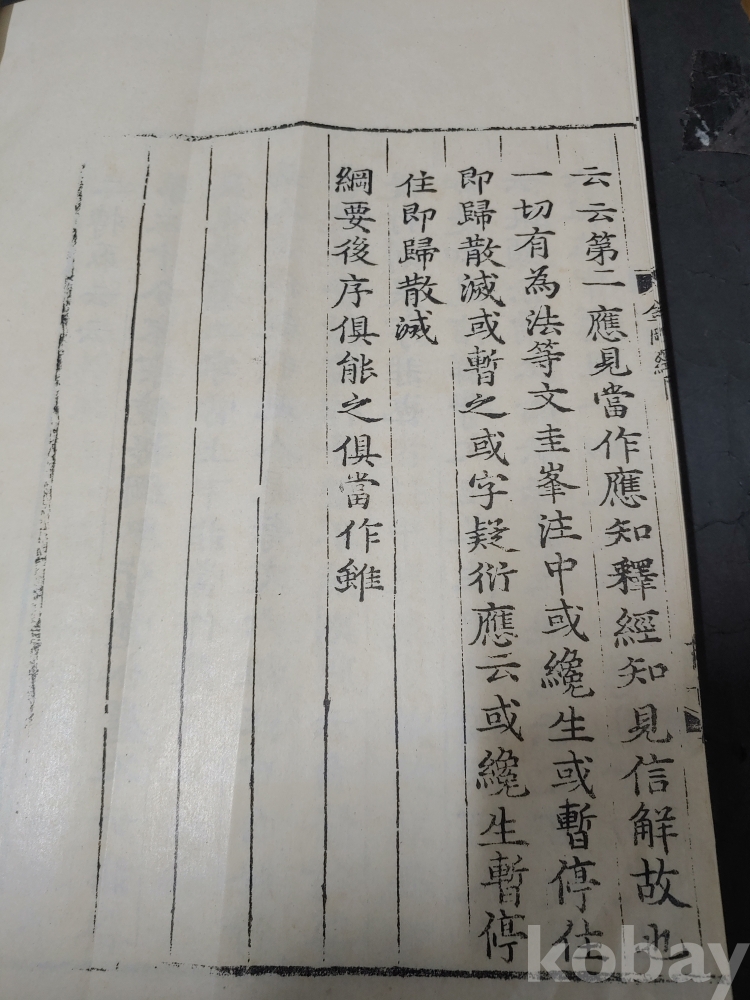 云云第二應見當作應知釋經知見信解故也
一切有為法等文圭峯注中或纔生或暫停住
即歸散滅或暫之或字疑衍應云或纔生暫停
住即歸散滅
綱要後序俱能之俱當作雖
金剛經
kobay